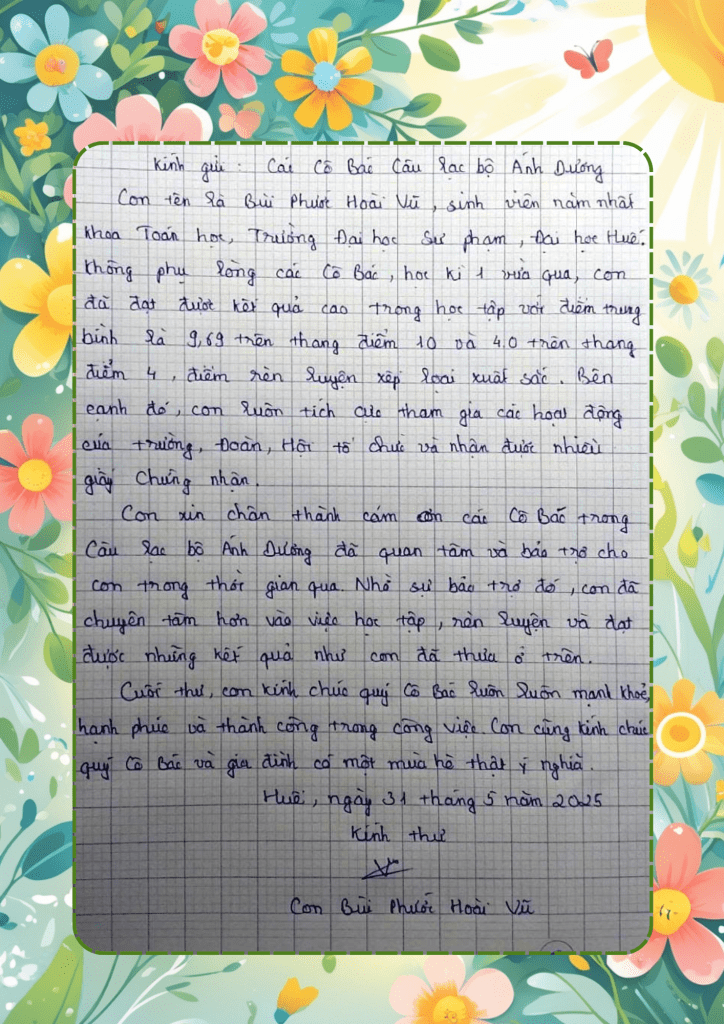 Kính gửi : Các Cô Bác Câu lạc bộ Ánh Dương
Con tên là Bùi Phước Hoài Vũ, sinh viên năm nhất
khoa Toán học, Trường Đại học Sư phạm, Đại học Huế.
Không phụ lòng các Cô Bác, học kì 1 vừa qua, con
đã đạt được kết quả cao trong học tập với điểm trung
bình là 9,69 trên thang điểm 10 và 4.0 trên thang
điểm 4, điểm rèn luyện xếp loại xuất sắc. Bên
cạnh đó, con luôn tích cực tham gia các hoạt động
của trường, Đoàn, Hội tổ chức và nhận được nhiều
giấy chứng nhận.
Con xin chân thành cám ơn các Cô Bác trong
Câu lạc bộ Ánh Dương đã quan tâm và bảo trợ cho
con trong thời gian qua. Nhờ sự bảo trợ đó, con đã
chuyên tâm hơn vào việc học tập, rèn luyện và đạt
được những kết quả như con đã thưa ở trên.
Cuối thư, con kính chúc quý Cô Bác luôn luôn mạnh khoẻ,
hạnh phúc và thành công trong công việc. Con cũng kính chúc
quý Cô Bác và gia đình có một mùa hè thật ý nghĩa.
Huế, ngày 31 tháng 5 năm 2025
Kính thư
Con Bùi Phước Hoài Vũ